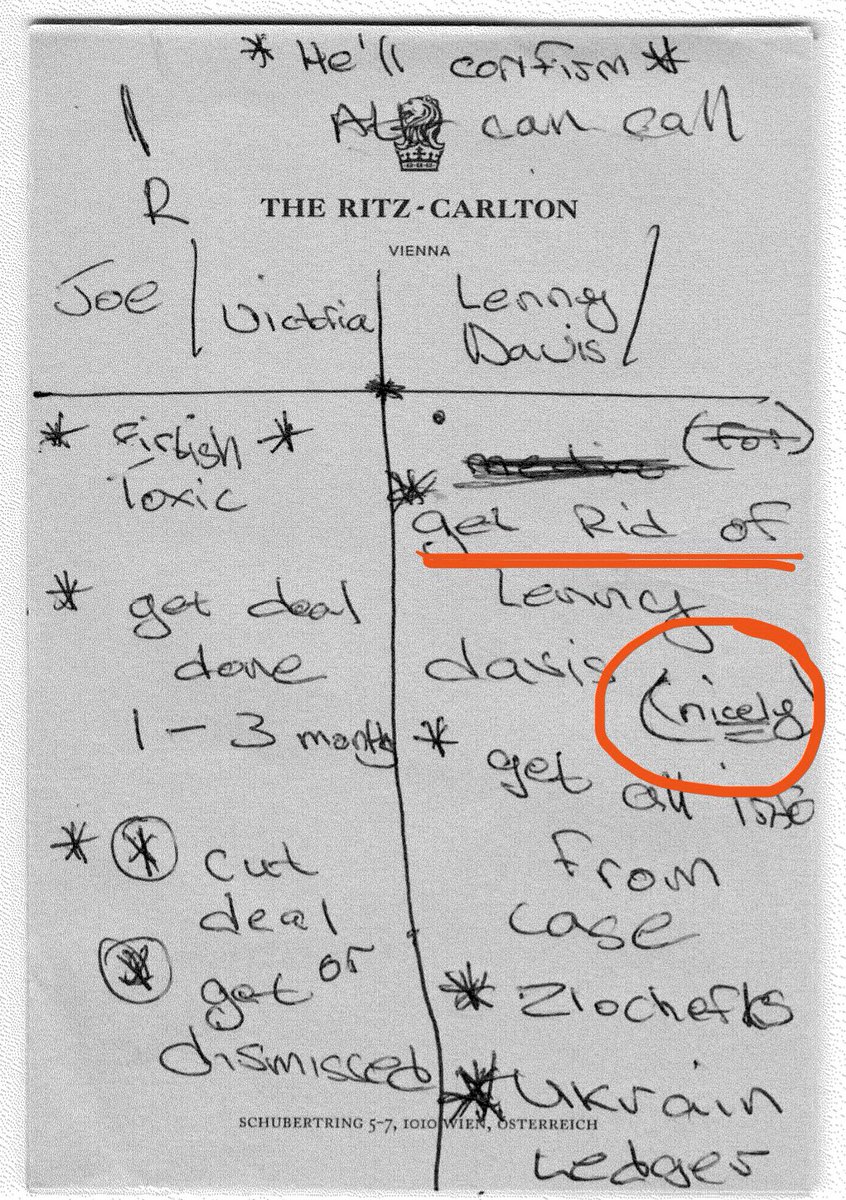 * He'll confirm *
can call
R
THE RITZ-CARLTON
VIENNA
Joe / Victoria
Lenny
Davis /
* Firtish *
Toxic
* get deal
done
1 - 3 months
* * cut
deal
or
* get
dismissed
(for)
* get Rid of
Lenny
davis
(nicely)
* get
all info
from
case
* Zlochefks
* Ukrain
Ledger
SCHUBERTRING 5-7, 1010 WIEN, ÖSTERREICH